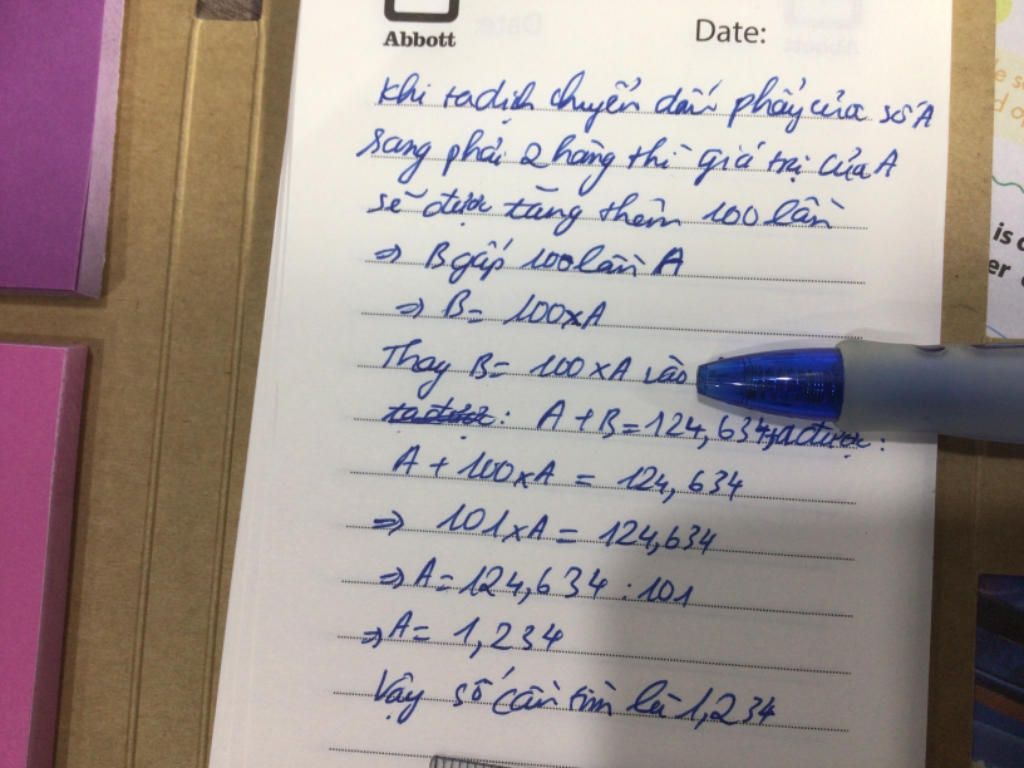 Abbott
Date:
Khi ta dịch chuyển dấu phẩy của số A
sang phải 2 hàng thì giá trị của A
sẽ được tăng thêm 100 lần
⇒ B gấp 100 lần A
⇒ B = 100 x A
Thay B = 100 x A vào
ta được: A + B = 124,634, ta được:
A + 100 x A = 124,634
⇒ 101 x A = 124,634
⇒ A = 124,634 : 101
⇒ A = 1,234
Vậy số cần tìm là 1,234
is
er